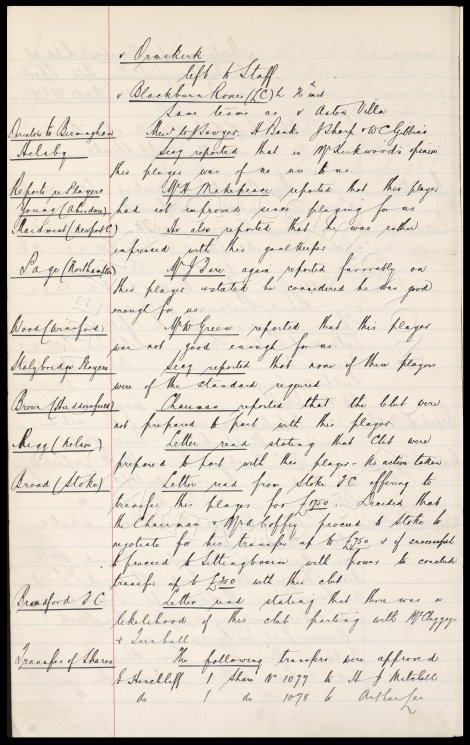 v Ormskirk
left to Staff
v Blackburn Rovers (LC) h
Same teams as v Aston Villa
Directors to Birmingham Messrs Sawyer, A Banks, J Sharp & W C Gibbins
Helsby Secy reported that in Mr Kirkwood's opinion
this player was of no use to us.
Reports re Players Mr H Makepeace reported that this player
Young (Aberdare) had not improved since playing for us
Maidment (Newport C) He also reported that he was rather
impressed with this goalkeeper
Page (Northampton) Mr J again reported favorably on
this player & stated he considered he was good
enough for us.
Wood (Winsford) Mr W Green reported that this player
was not good enough for us
Stalybridge Players Secy reported that none of these players
were of the standard required
Brown (Huddersfield) Chairman reported that the Club were
not prepared to part with this player
Rigg (Nelson) Letter read stating that Club were
prepared to part with this player - No action taken
Broad (Stoke) Letter read from Stoke F.C. offering to
transfer this player for £1750. Decided that
the Chairman & Mr Coffey proceed to Stoke to
negotiate for his transfer up to £750 & if successful
to proceed to Sittingbourne with power to conclude
transfer up to £250 with this club.
F.C. Letter read stating that there was a
likelihood of this club parting with
& Turnbull.
Transfer of Shares The following transfers were approved
Hinchliff 1 Share No 1077 to H J Mitchell
do 1 do 1078 to Arthur Lee